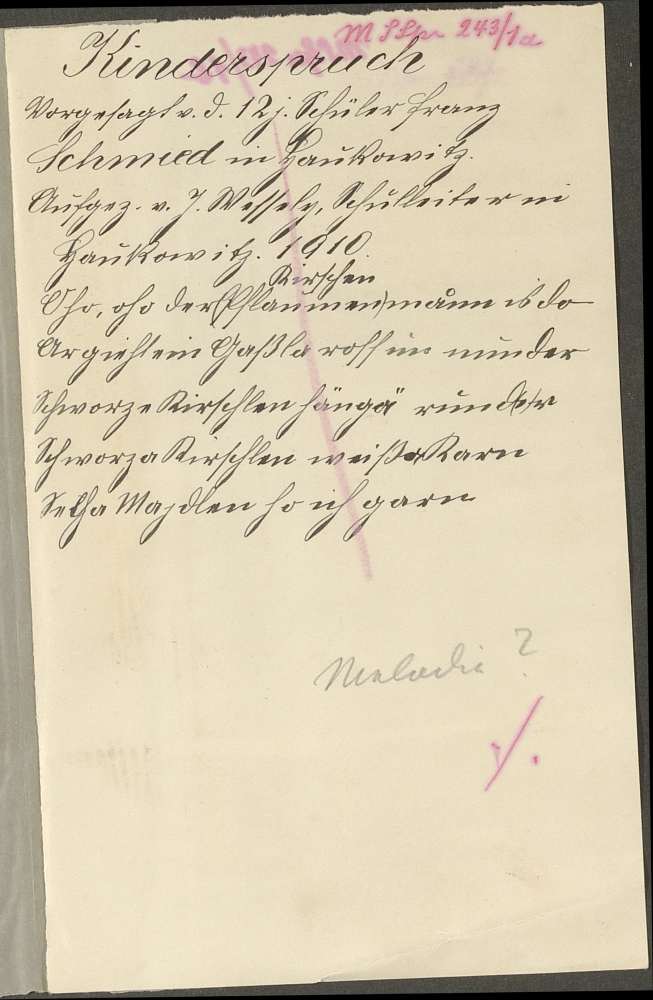 M SSpr 243/1a
Kinderspruch
Vorgesagt v. d. 12 j. Schüler Franz
Schmied in Haukowitz.
Aufgez. v. J. Wessely, Schulleiter in
Haukowitz. 1910.
Kirschen
Oho, oho der (Pflaumen)männ is do
Ar gieht ein Gaßla roff un nunder
Schworze Kirschlen hängä runder
Schworza Kirschlen weißa Karn
Selha Majdlen ho ich garn
Melodie?